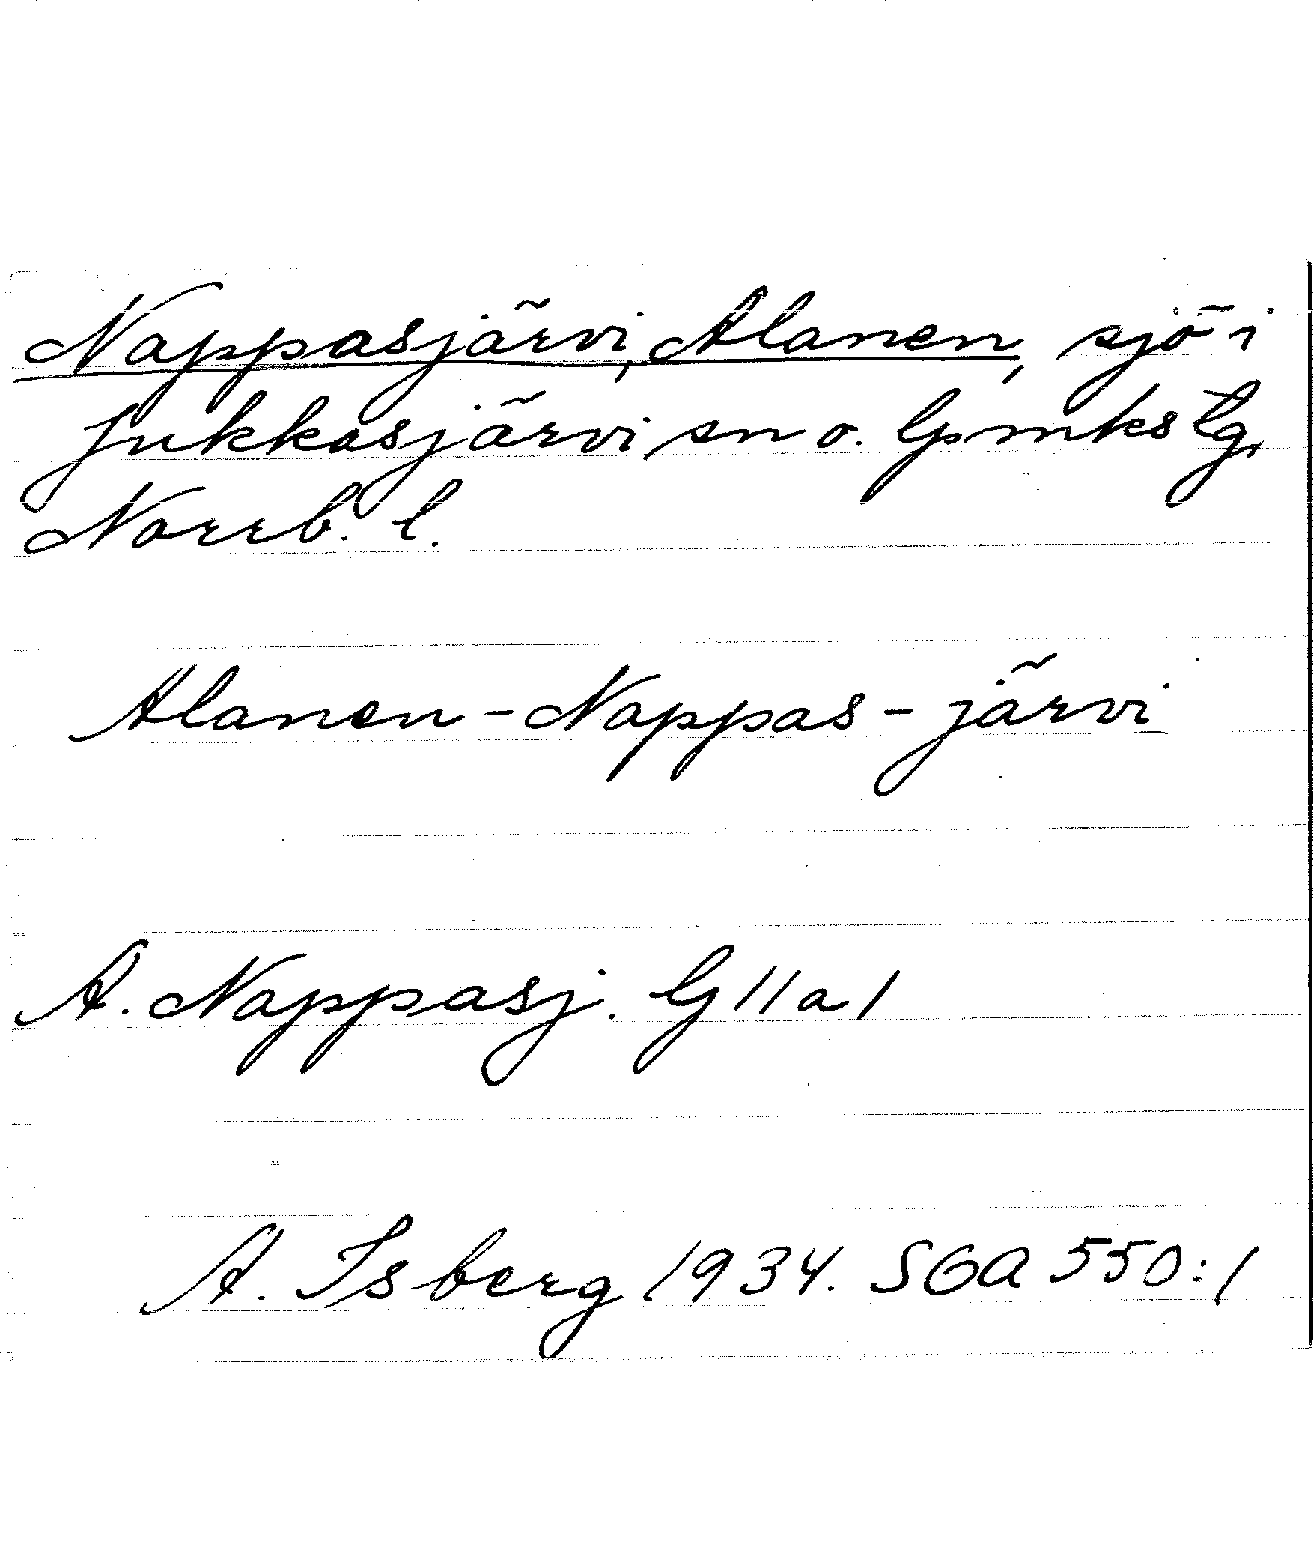 Nappasjärvi, Alanen, sjö i
Jukkasjärvi sn o. lpmks tg,
Norrb. l.
Alanen-Nappas-järvi
A. Nappasj. G 11 a 1
A. Isberg 1934. SGA 550:1